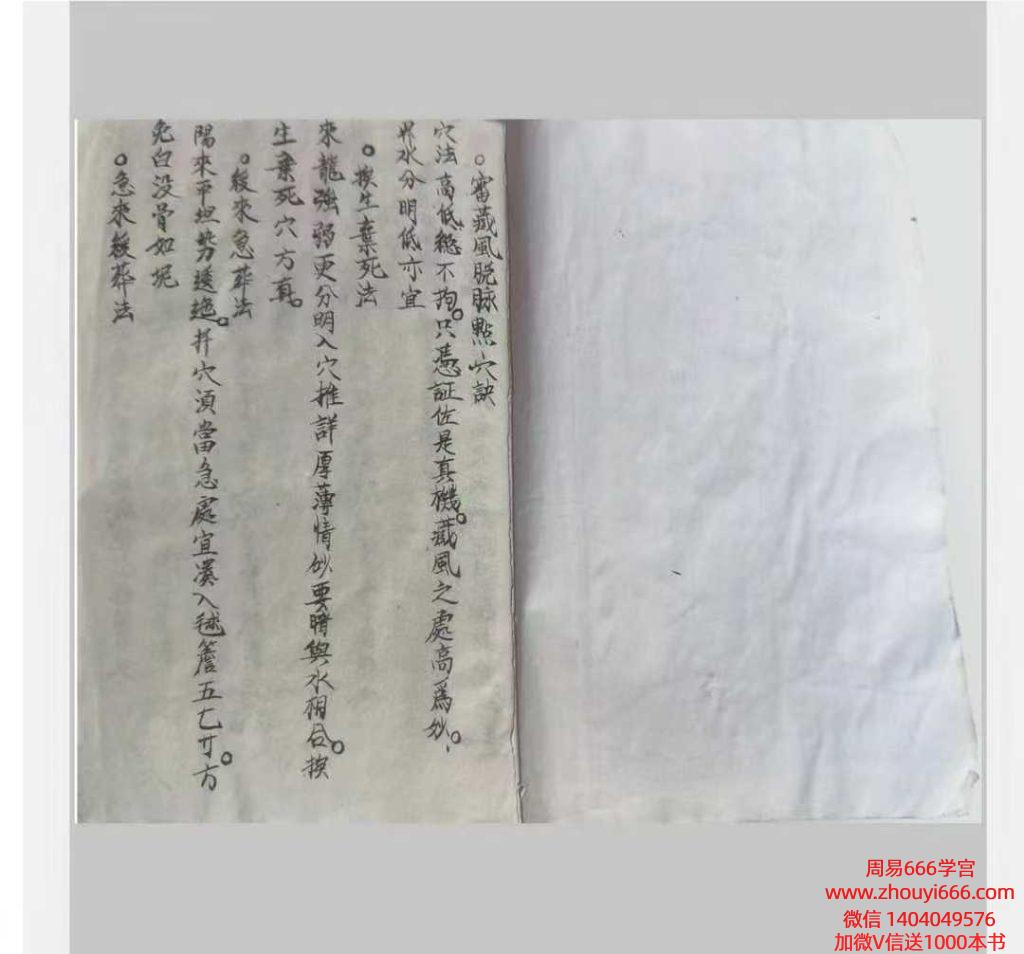 。審藏風脱脉點穴訣
穴法高低總不拘。只憑証佐是真機。藏風之處高爲妙。
界水分明低亦宜
。挨生棄死法
來龍強弱更分明入穴推詳厚薄情妙要暗與水相合。挨
生棄死穴方真。
。緩來急葬法
陽來平坦勢逶迤。扦穴須當急處宜湊入毬簷五七寸。方
免白没骨如坭
。急來緩葬法
周易666学宫
www.zhouyi666.com
微信 1404049576
加微V信送1000本书